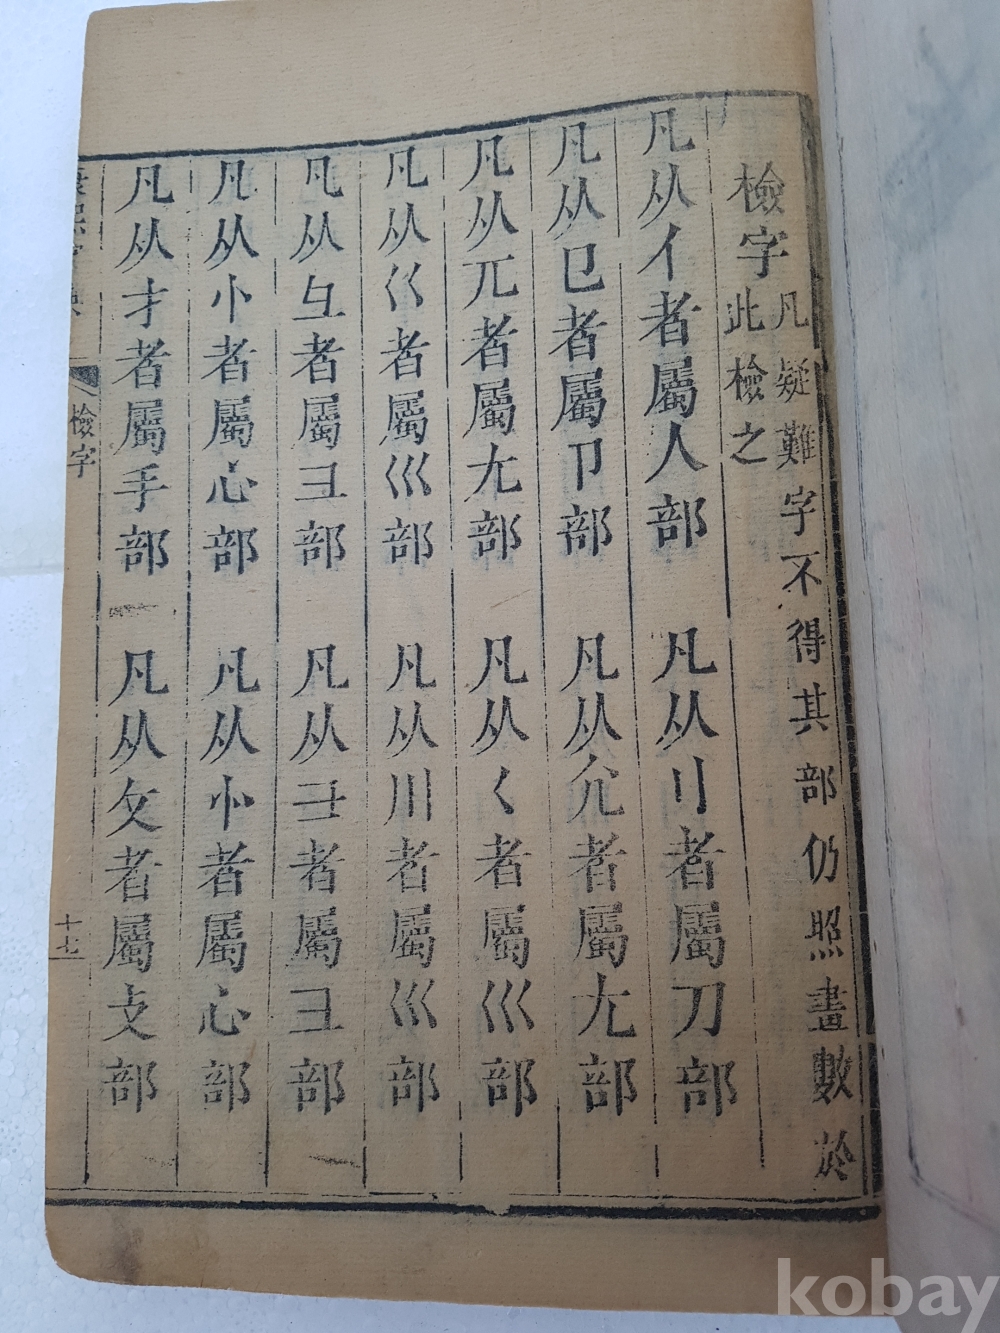 檢字 凡疑難字不得其部仍照畫數於
此檢之
凡从亻者屬人部 凡从刂者屬刀部
凡从㔾者屬卩部 凡从尣者屬尢部
凡从兀者屬尢部 凡从𡿨者屬巛部
凡从巜者屬巛部 凡从川者屬巛部
凡从彑者屬彐部 凡从⺕者屬彐部
凡从忄者屬心部 凡从㣺者屬心部
凡从才者屬手部 凡从攵者屬攴部
檢字
十七
kobay